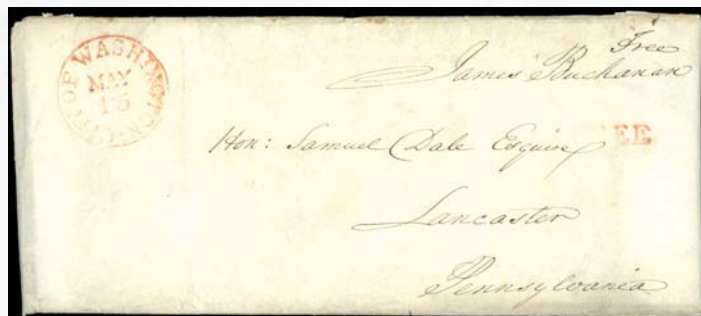 CITY OF WASHINGTON
MAY
15
Free
James Buchanan
FREE
Hon: Samuel Dale Esquire
Lancaster
Pennsylvania